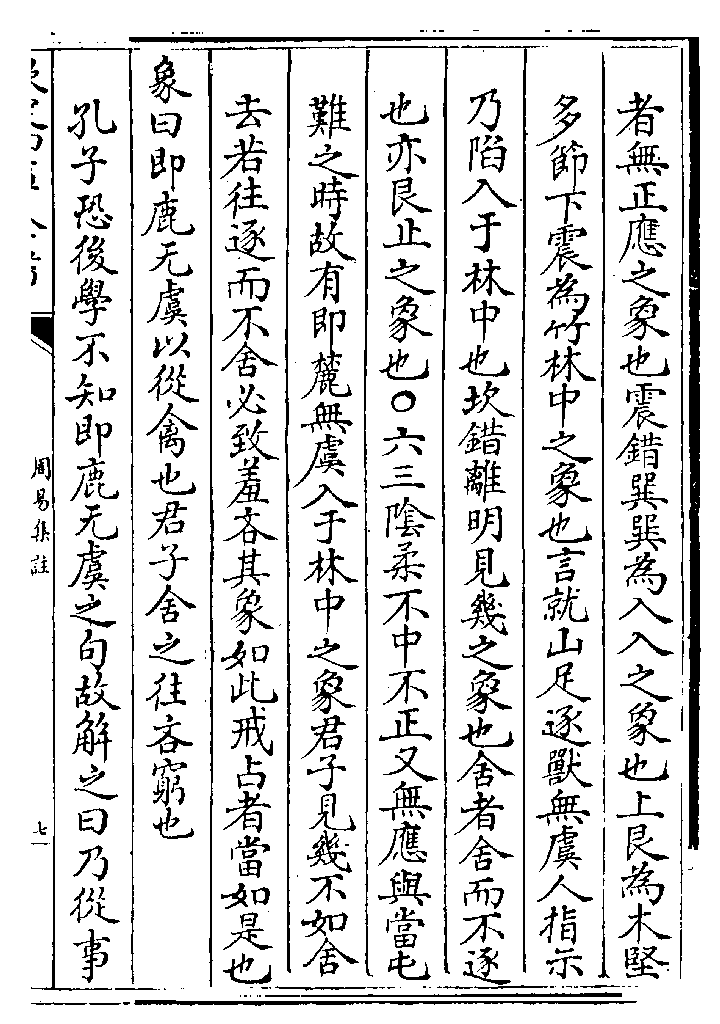 者無正應之象也震錯巽巽為入入之象也上艮為木堅
多節下震為竹林中之象也言就山足逐獸無虞人指示
乃陷入于林中也坎錯離明見幾之象也舍者舍而不逐
也亦艮止之象也○六三陰柔不中不正又無應與當屯
難之時故有即麓無虞入于林中之象君子見幾不如舍
去若往逐而不舍必致羞吝其象如此戒占者當如是也
象曰即鹿无虞以從禽也君子舍之往吝窮也
孔子恐後學不知即鹿无虞之句故解之曰乃從事
周易集註
七一